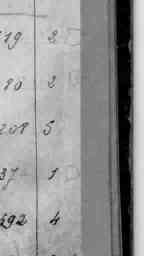 19 2
80 2
208 5
37 1
392 4